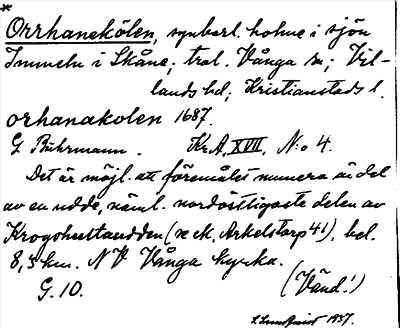 *
Orrhanekölen, synbarl. holme i sjön
Immeln i Skåne; trol. Vånga sn; Vil-
lands hd; Kristianstads l.
orhanakolen 1687.
G. Buhrmann. Kr.A, XVII, N:o 4.
Det är möjl. att föremålet numera är del
av en udde, näml. nordöstligaste delen av
(se ek. Arkelstorp 41), bel.
8,3 km. NV Vånga kyrka.
G. 10. (Vänd!)
1937.